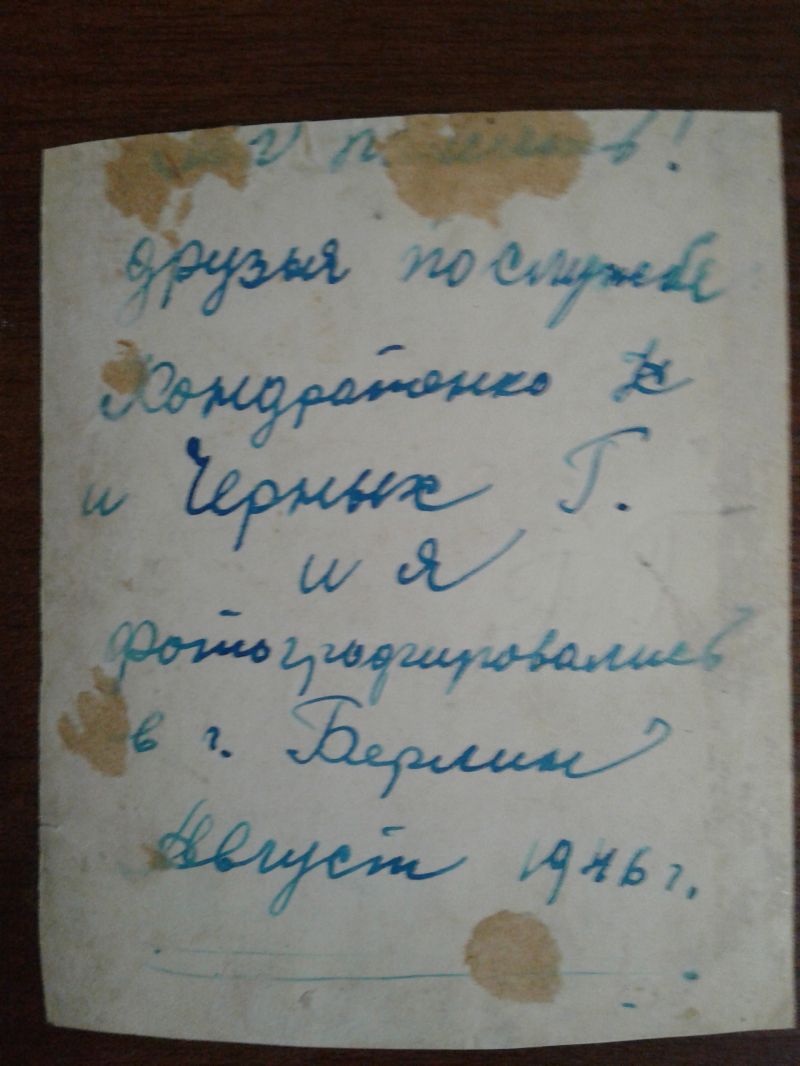 друзья по службе
Кондратенко
и Черных Г.
и я
фотографировались
в г. Берлин
Август 1946 г.